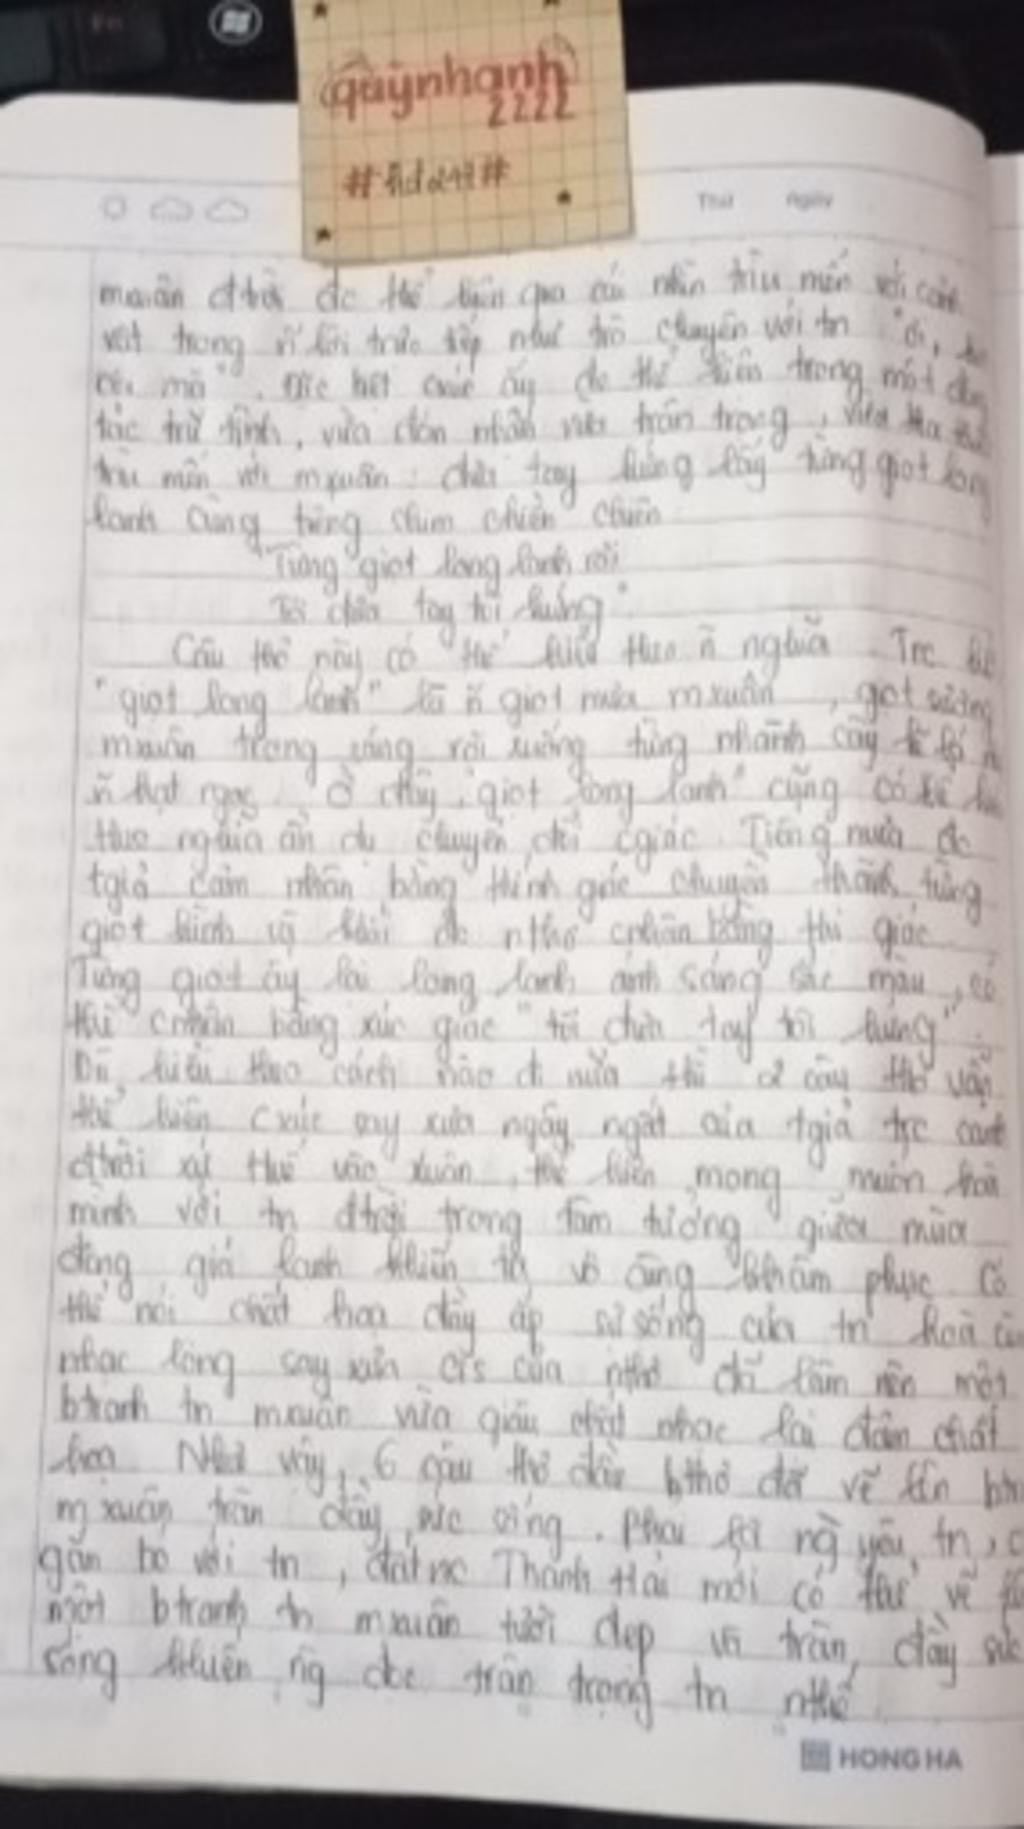 quỳnhanh
2222
#
Thứ ngày
mxuân đtrời đc thể hiện qua cái nhìn trìu mến với cảnh
vật trong ~ lời trực tiếp như trò chuyện với tn "ơi,
mà". xúc ấy đc thể hiện trong một động
tác trữ tình, vừa đón nhận vừa trân trọng, vừa tha thiết
trìu mến với mxuân: đưa tay hứng lấy từng giọt long
lanh cùng tiếng chim chiền chiện
"Từng giọt long lanh rơi
Tôi đưa tay tôi hứng".
Câu thơ này có thể hiểu theo ~ nghĩa. Trc hết
"giọt long lanh" là ~ giọt mưa mxuân, giọt sương
mxuân trong sáng rơi xuống từng nhành cây kẽ lá
~ hạt ngọc. Ở đây, "giọt long lanh" cũng có thể hiểu
theo nghĩa ẩn dụ chuyển đổi cgiác. Tiếng đc
tgiả cảm nhận bằng thính giác chuyển thành từng
giọt hình và khối đc nthơ cnhận bằng thị giác
Từng giọt ấy lại long lanh ánh sáng sắc màu, có
thể cnhận bằng xúc giác "tôi đưa tay tôi hứng".
Dù hiểu theo cách nào đi nữa thì 2 câu thơ vẫn
thể hiện cxúc say sưa ngây ngất của tgiả trc cảnh
đtrời xứ Huế vào xuân, thể hiện mong muốn hoà
mình với tn đtrời trong tâm tưởng giữa mùa
đông giá lạnh khiến ta vô cùng khâm phục. Có
thể nói chất hoạ đầy ắp sự sống của tn hoà
nhạc lòng say xưa của nthơ đã làm nên một
btranh tn mxuân vừa giàu chất nhạc lại đậm chất
hoạ. Như vậy, 6 câu thơ đầu bthơ đã vẽ lên
mxuân tràn đầy sức sống. Phải là yêu tn,
gắn bó với tn, đất nc Thanh Hải mới có thể vẽ
một btranh tn mxuân tươi đẹp và tràn đầy sức
sống khiến ng đọc trân trọng tn nthế.
HONG HA